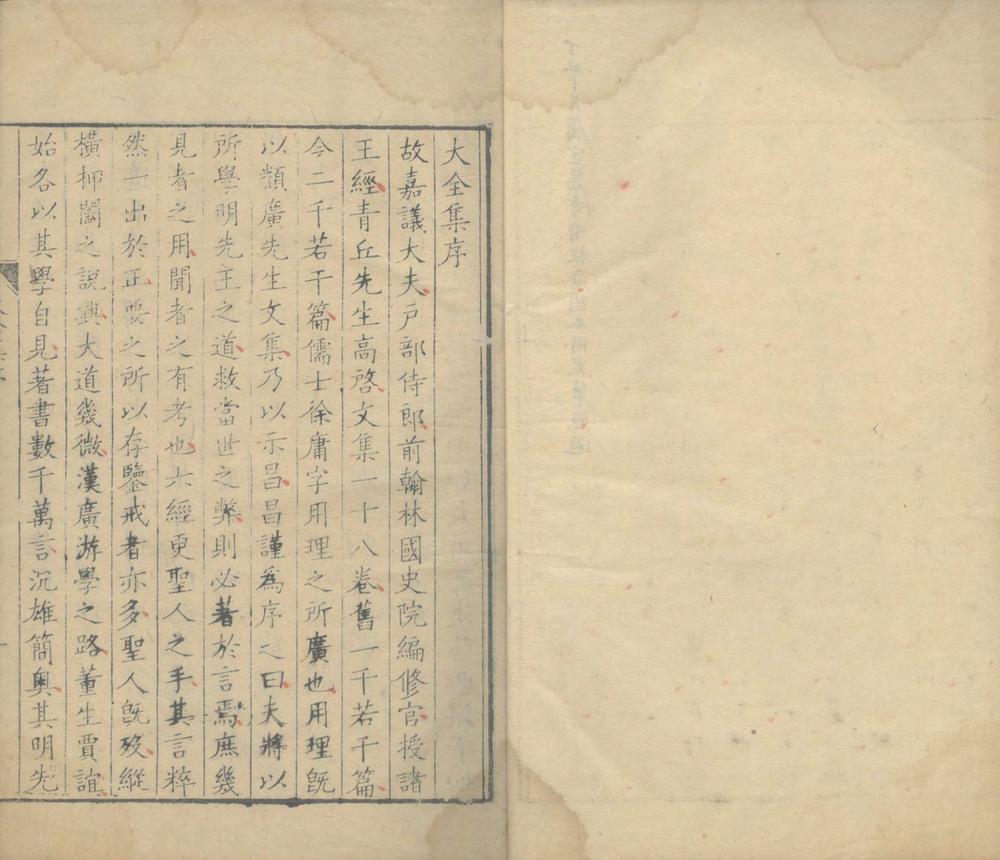 大全集序
故嘉議大夫戶部侍郎前翰林國史院編修官授諸
王經青丘先生高啓文集一十八卷舊一千若干篇
今二千若干篇儒士徐庸字用理之所廣也用理旣
以類廣先生文集乃以示昌昌謹爲序之曰夫將以
所學明先王之道救當世之弊則必著於言焉庶幾
見者之用聞者之有考也六經更聖人之手其言粹
然一出於正要之所以存鑒戒者亦多聖人旣歿縱
橫捭闔之說興大道幾微漢廣游學之路董生賈誼
始各以其學自見著書數千萬言沉雄簡奧其明先